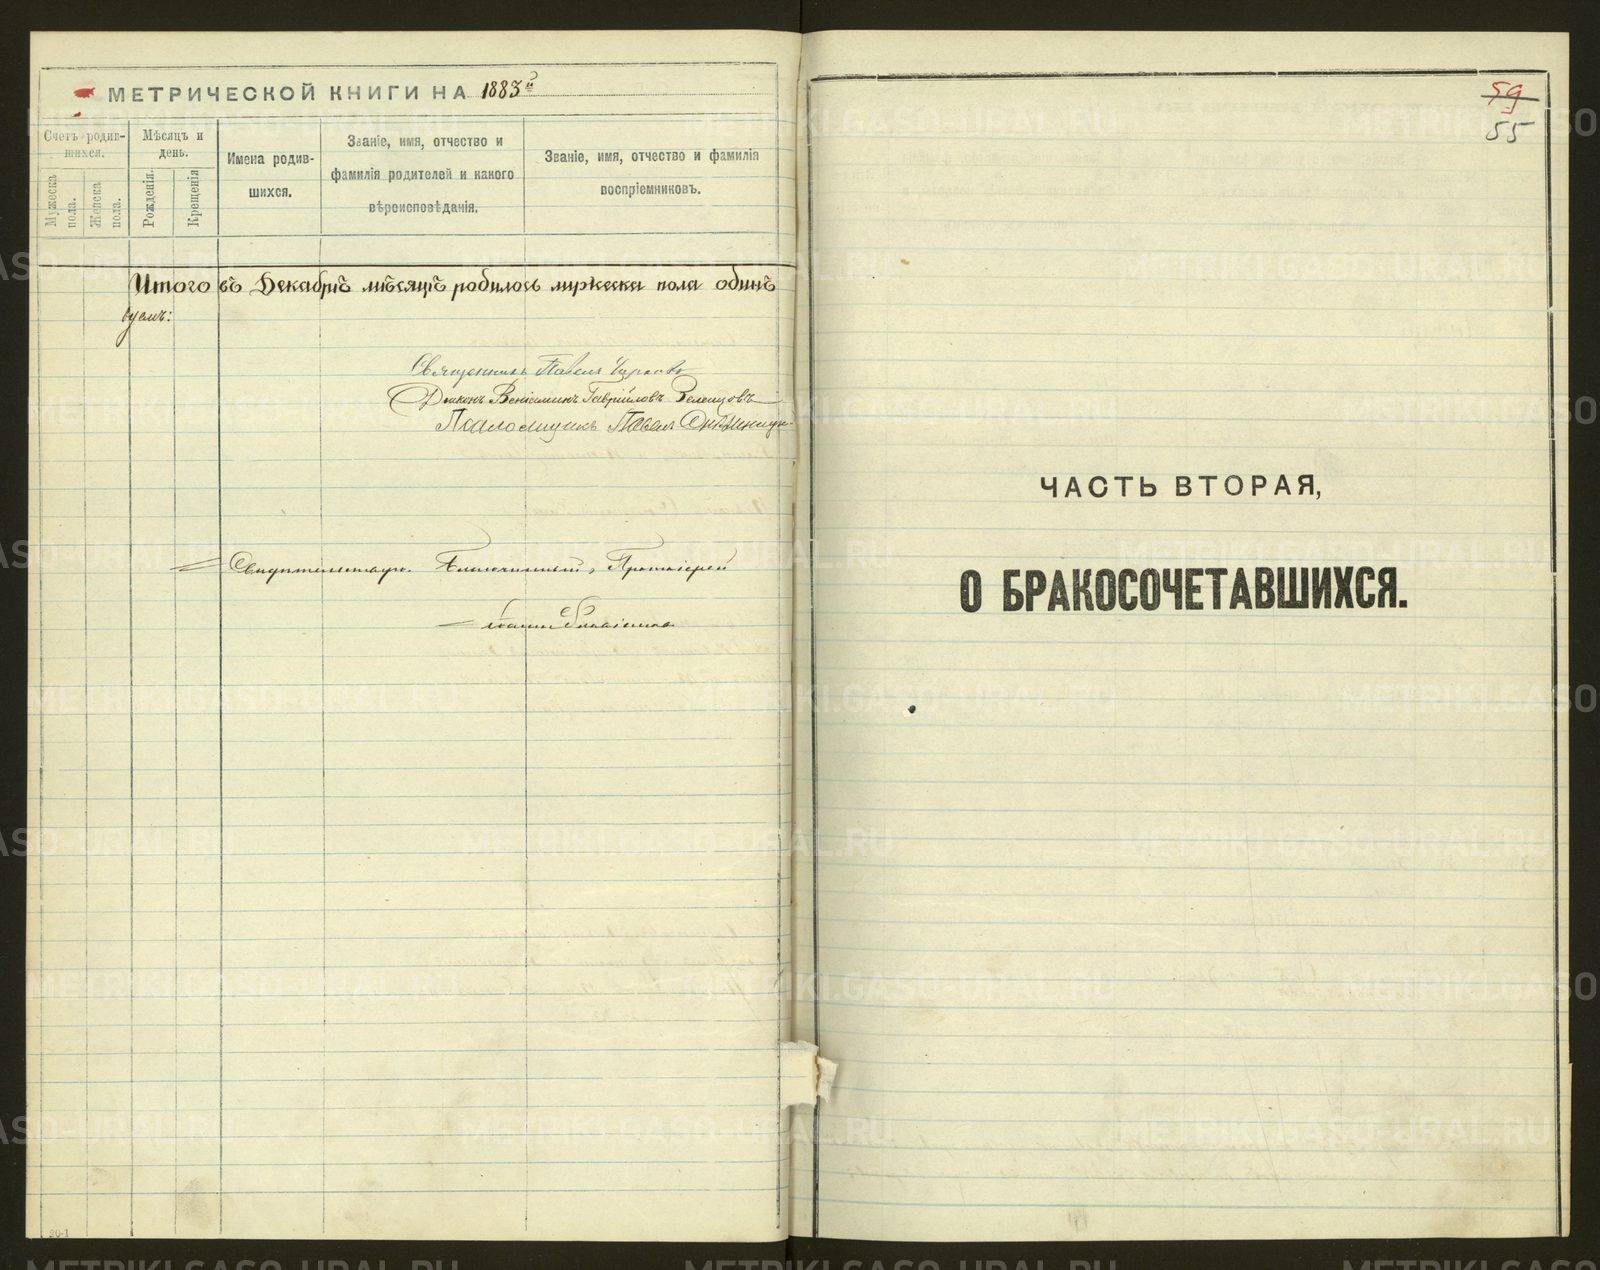 МЕТРИЧЕСКОЙ КНИГИ НА 1883й
Счетъ родив-
шихся.
Мужеска
пола.
Женска
пола.
Мѣсяцъ и
день.
Рожденія.
Крещенія
Имена родив-
шихся.
Званіе, имя, отчество и
фамилія родителей и какого
вѣроисповѣданія.
Званіе, имя, отчество и фамилія
воспріемниковъ.
Итого въ Декабрѣ мѣсяцѣ родилось мужеска пола одинъ
Священникъ Павелъ
Діаконъ Веніаминъ Гавріиловъ
Псаломщикъ Павелъ
Свидѣтельствую. Благочинный, Протоіерей
20-1
59
55
ЧАСТЬ ВТОРАЯ,
О БРАКОСОЧЕТАВШИХСЯ.
METRIKI.GASO-URAL.RU